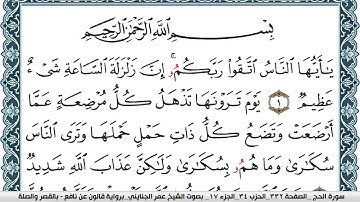 بِسْمِ اللَّهِ الرَّحْمَٰنِ الرَّحِيمِ
يَٰأَيُّهَا النَّاسُ اتَّقُوا رَبَّكُمُۥ إِنَّ زَلْزَلَةَ السَّاعَةِ شَيْءٌ
عَظِيمٌ ١ يَوْمَ تَرَوْنَهَا تَذْهَلُ كُلُّ مُرْضِعَةٍ عَمَّا
أَرْضَعَتْ وَتَضَعُ كُلُّ ذَاتِ حَمْلٍ حَمْلَهَا وَتَرَى النَّاسَ
سُكَٰرَىٰ وَمَا هُمُۥ بِسُكَٰرَىٰ وَلَٰكِنَّ عَذَابَ اللَّهِ شَدِيدٌ
سورة الحج _ الصفحة ٣٣٢ _ الجزب ٣٤ _ الجزء ١٧ _ بصوت الشيخ عمر الجنايني _ برواية قالون عن نافع - بالقصر والصلة